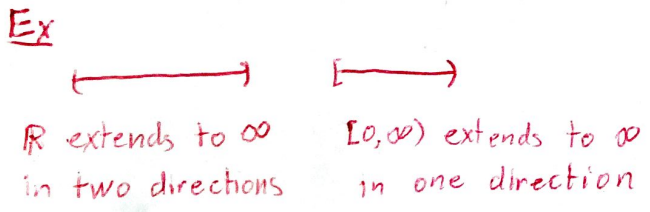 Ex
ℝ extends to ∞
in two directions
[0,∞) extends to ∞
in one direction